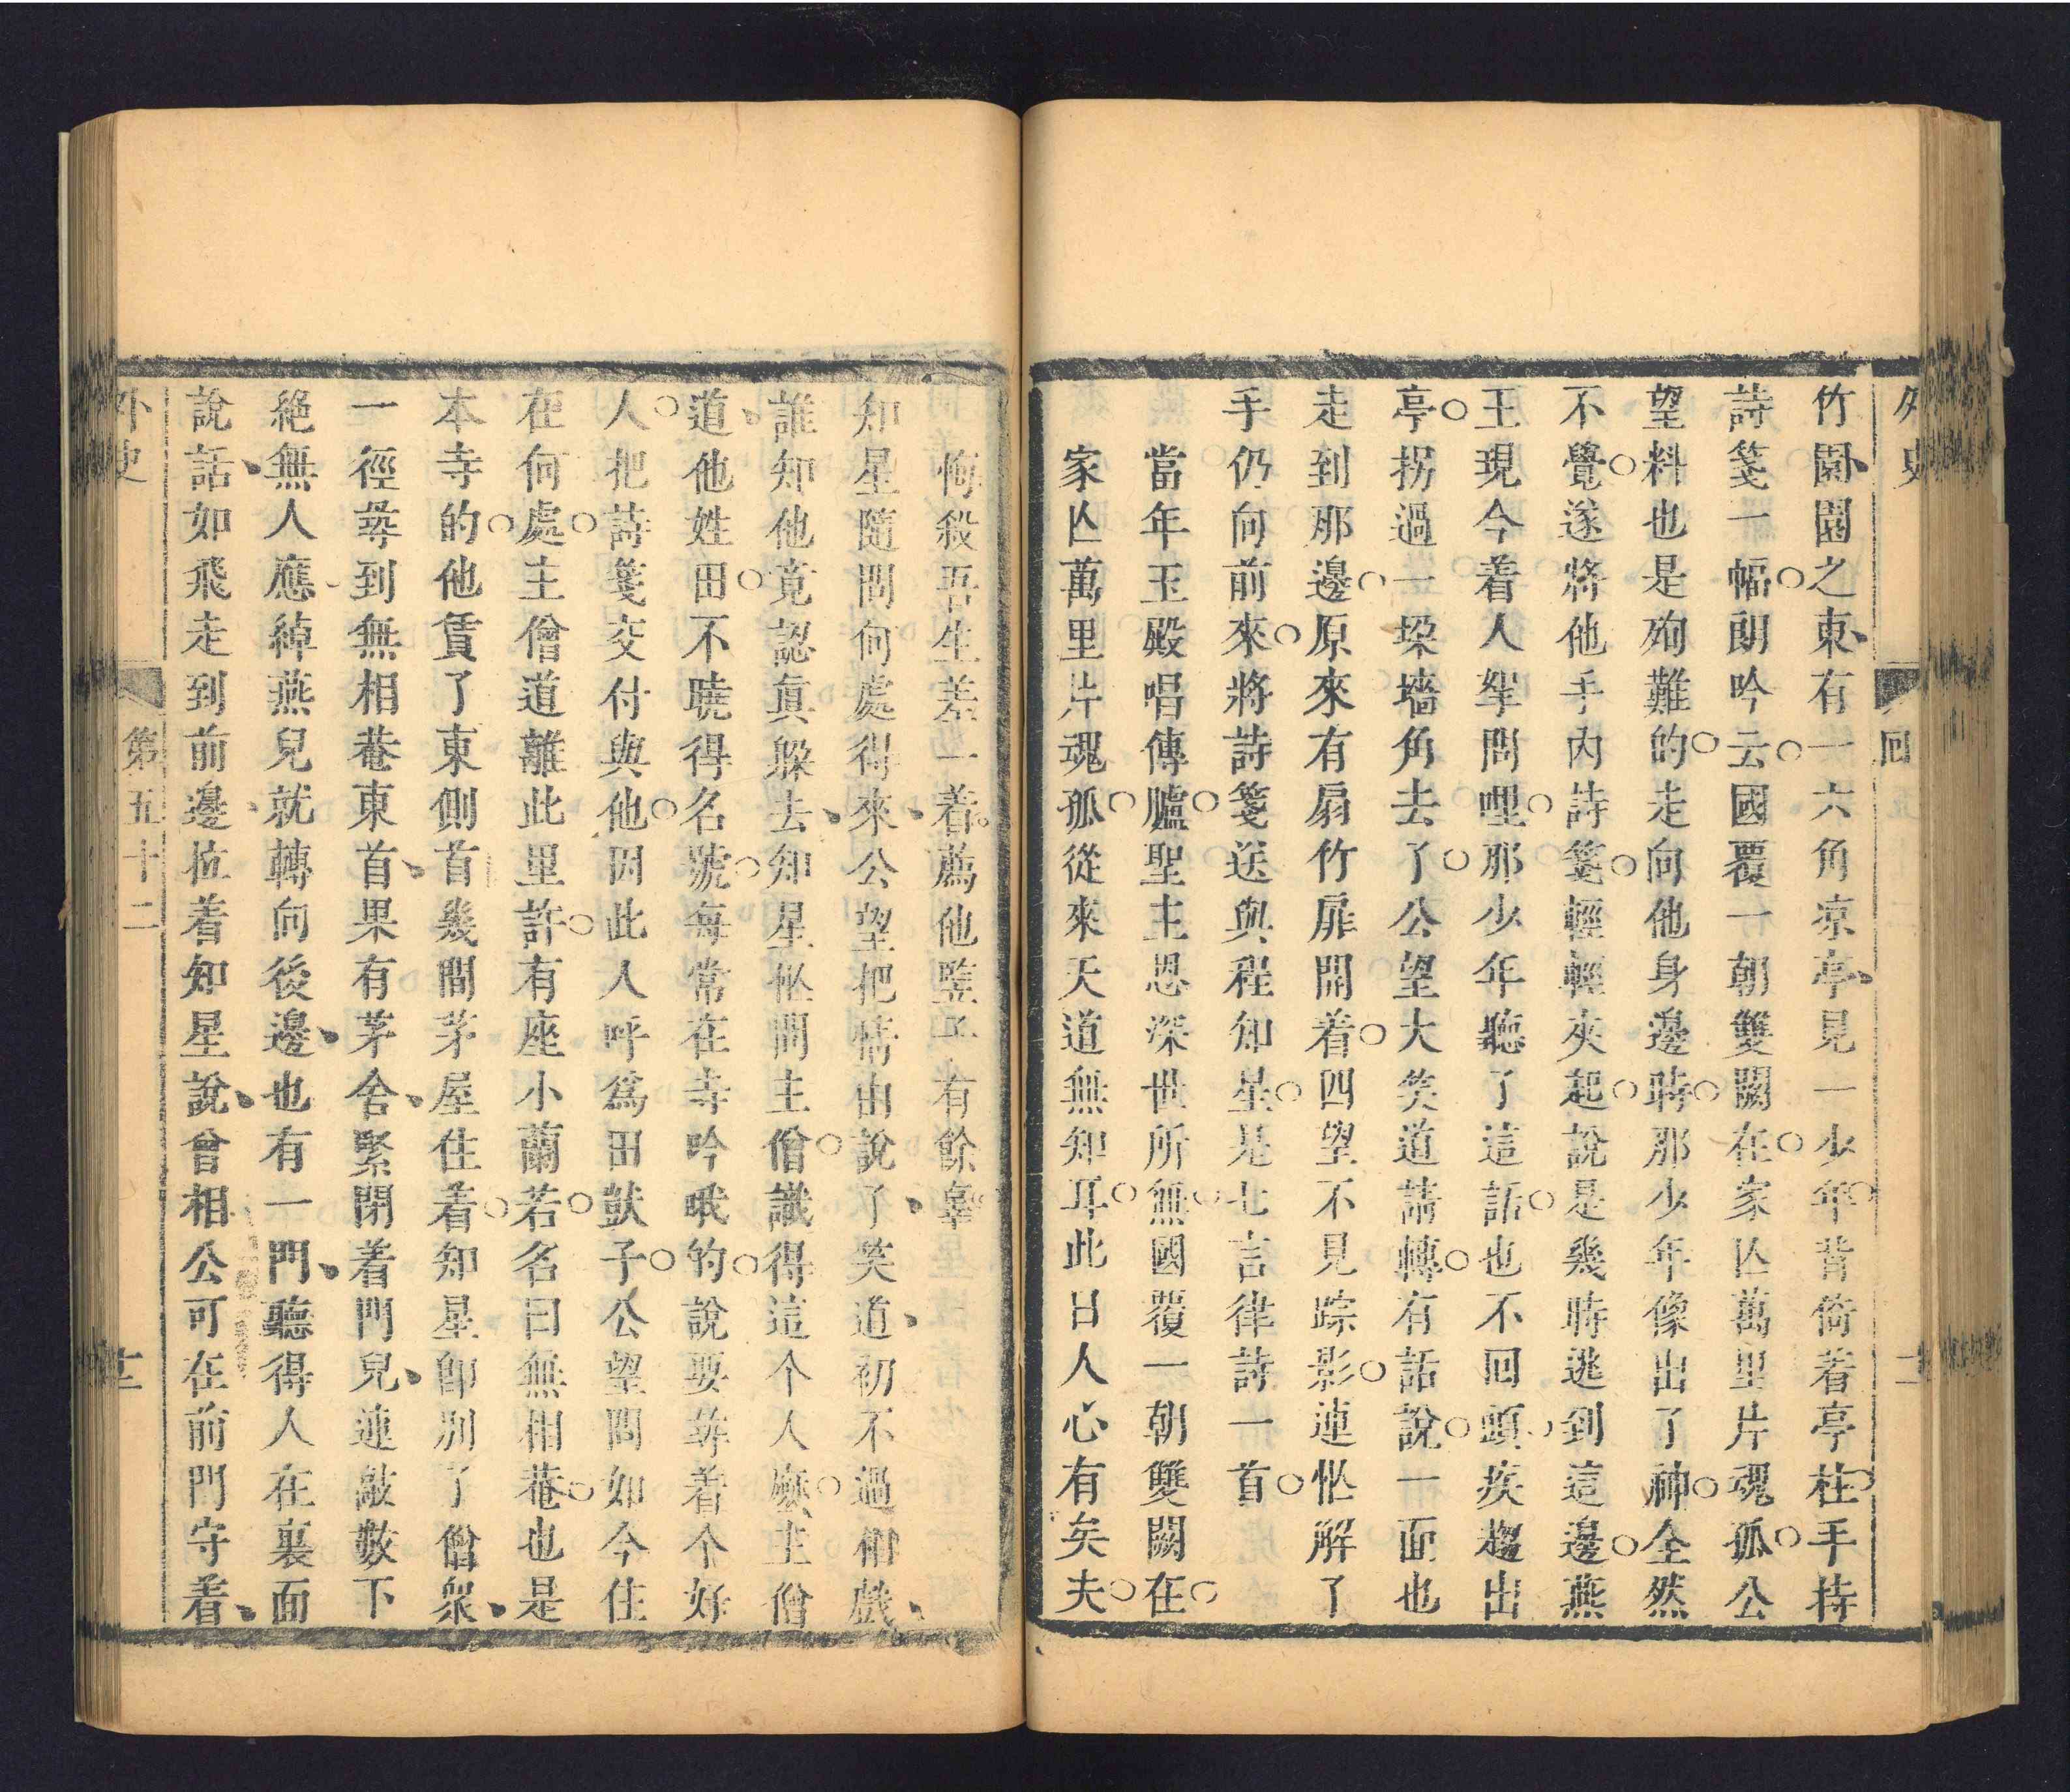 外史
回
二
竹園園之東有一六角凉亭見一少年背倚着亭柱手持
詩箋一幅朗吟云國覆一朝雙闕在家亾萬里片魂孤公
望料也是殉難的走向他身邊時那少年像出了神全然
不覺遂將他手內詩箋輕輕夾起說是幾時逃到這邊燕
王現今着人挐問哩那少年聽了這話也不回頭疾趨出
亭拐過一垜墻角去了公望大笑道請轉有話說一面也
走到那邊原來有扇竹扉開着四望不見踪影連忙解了
手仍向前來將詩箋送與程知星是七言律詩一首
當年玉殿唱傳臚聖主恩深世所無國覆一朝雙闕在
家亾萬里片魂孤從來天道無知耳此日人心有矣夫
悔殺吾生差一着薦他豎子有餘辜
知星隨問何處得來公望把情由說了笑道初不過相戲
誰知他竟認眞躱去知星忙問主僧識得這个人麽主僧
道他姓田不曉得名號每常在寺吟哦的說要尋着个好
人把詩箋交付與他因此人呼爲田獃子公望問如今住
在何處主僧道離此里許有座小蘭若名曰無相菴也是
本寺的他賃了東側首幾間茅屋住着知星卽别了僧衆
一徑尋到無相菴東首果有茅舍緊閉着門兒連敲數下
絕無人應綽燕兒就轉向後邊也有一門聽得人在裏面
說話如飛走到前邊拉着知星說曾相公可在前門守着
外史
第五十二